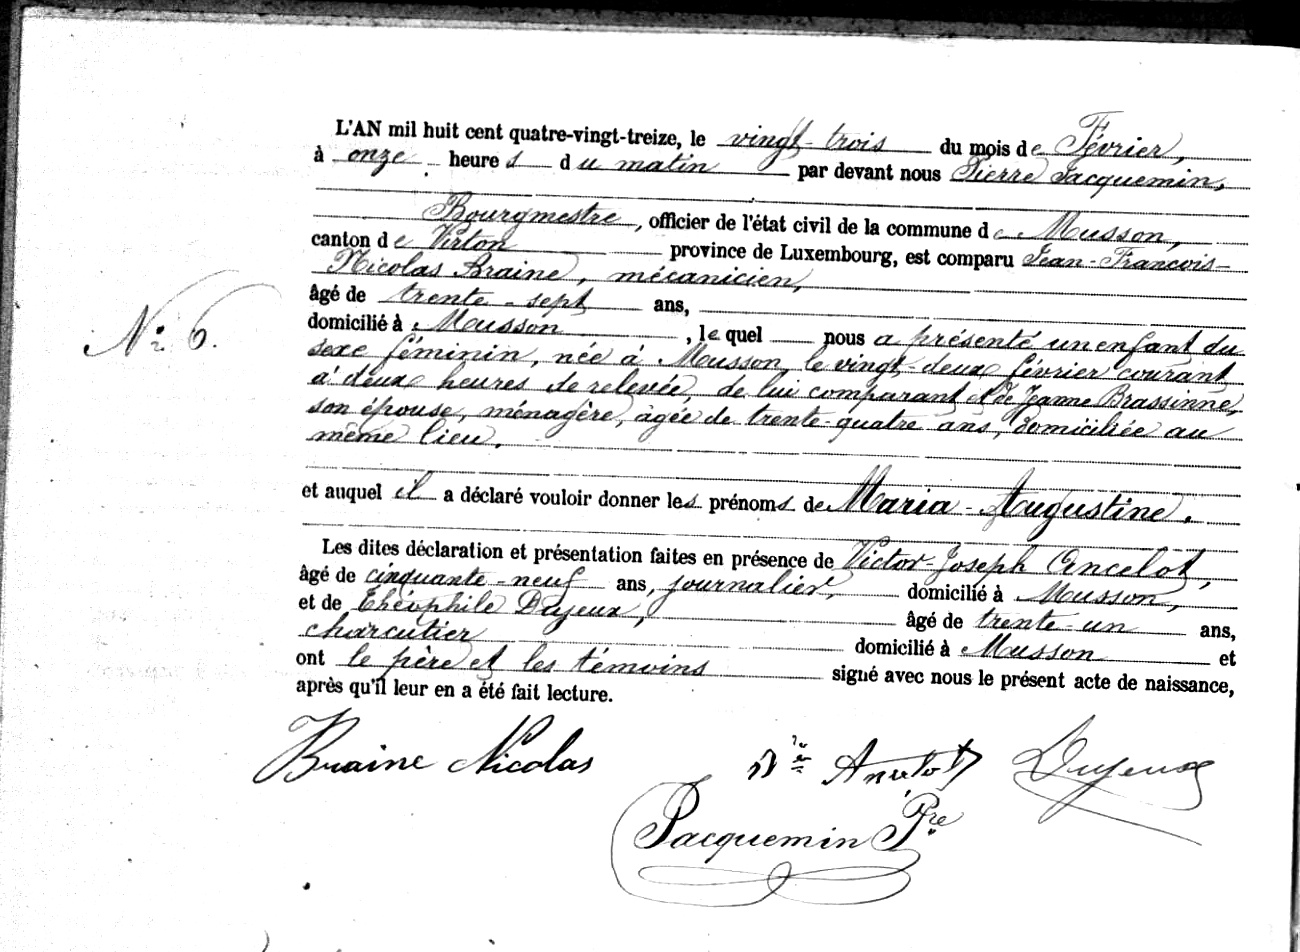 L'AN mil huit cent quatre-vingt-treize, le vingt-trois du mois de Février,
à onze heures du matin par devant nous Pierre Jacquemin,
Bourgmestre, officier de l'état civil de la commune de Musson,
canton de Virton province de Luxembourg, est comparu Jean-François-
Nicolas Braine, mécanicien,
âgé de trente-sept ans,
domicilié à Musson, lequel nous a présenté un enfant du
N° 6.
sexe féminin, née à Musson, le vingt-deux février courant
à deux heures de relevée, de lui comparant et de Jeanne Brassinne,
son épouse, ménagère, âgée de trente-quatre ans, domiciliée au
même lieu,
et auquel il a déclaré vouloir donner les prénoms de Maria-Augustine.
Les dites déclaration et présentation faites en présence de Victor-Joseph Ancelot,
âgé de cinquante-neuf ans, journalier, domicilié à Musson,
et de Théophile Dujeux, âgé de trente-un ans,
charcutier domicilié à Musson et
ont le père et les témoins signé avec nous le présent acte de naissance,
après qu'il leur en a été fait lecture.
Braine Nicolas Dujeux
Jacquemin Pre